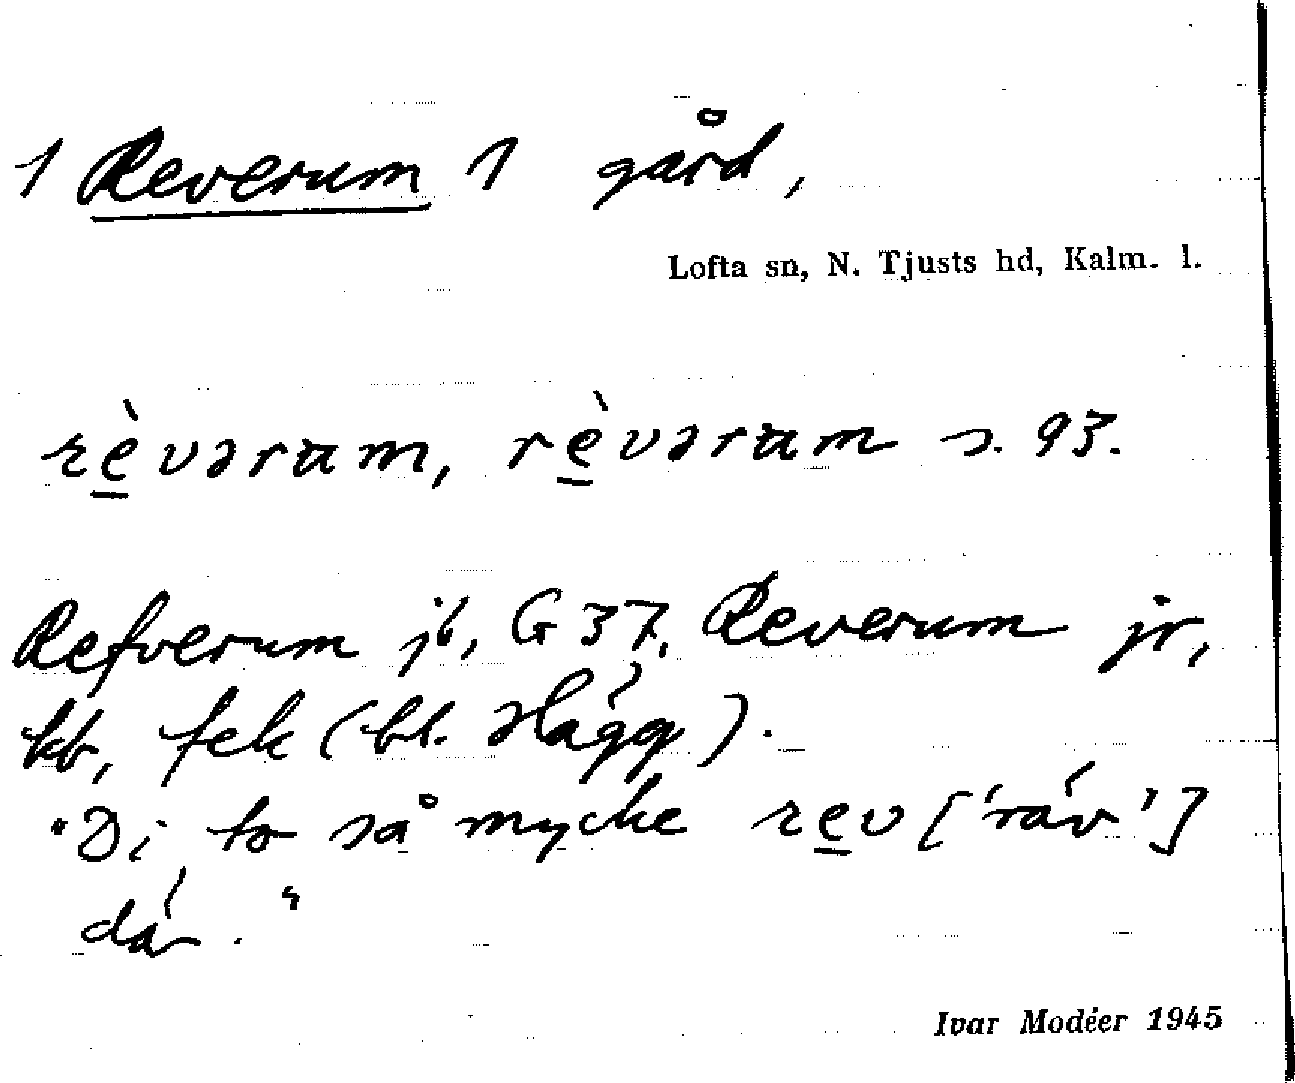 1 Reverum 1 gård,
Lofta sn, N. Tjusts hd, Kalm. l.
rèvəram, rèvəram s. 93.
Refverum jb, G 37, Reverum jr,
kb, fek (bl. Hägg).
"Di to så mycke rev ['räv']
där."
Ivar Modéer 1945